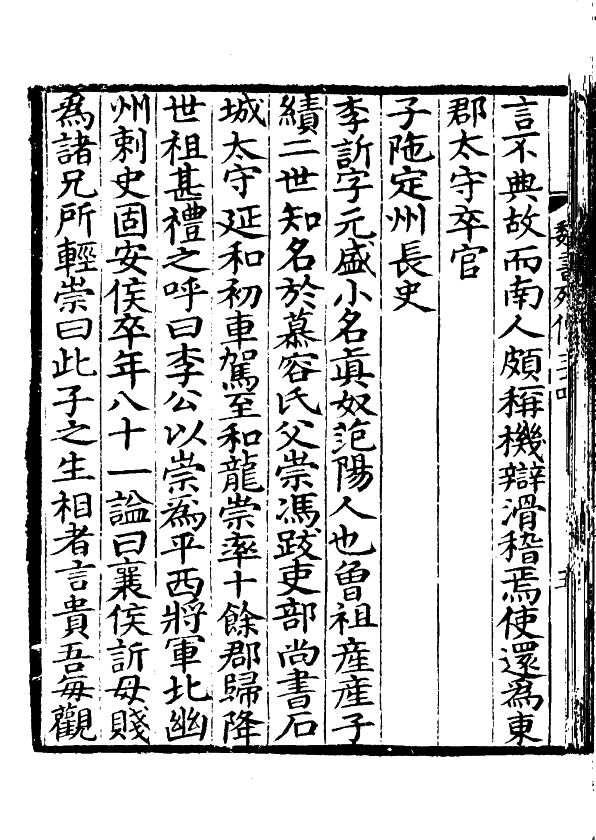 言不典故而南人頗稱機辯滑稽焉使還爲東
郡太守卒官
子陁定州長史
李訢字元盛小名眞奴范陽人也曾祖産産子
績二世知名於慕容氏父崇馮跋吏部尚書石
城太守延和初車駕至和龍崇率十餘郡歸降
世祖甚禮之呼曰李公以崇爲平西將軍北幽
州刺史固安侯卒年八十一謚曰襄侯訢母賤
爲諸兄所輕崇曰此子之生相者言貴吾每觀
魏書列傳三十四
五